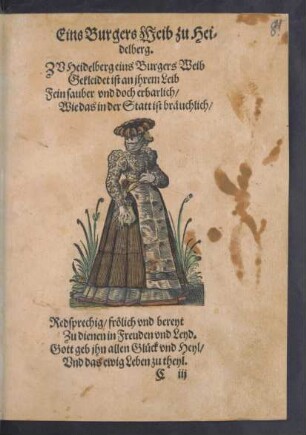 Eins Burgers Weib zu Hei-
delberg.
ZV Heidelberg eins Burgers Weib
Gekleidet ist an jhrem Leib
Fein sauber vnd doch erbarlich/
Wie das in der Statt ist bräuchlich/
Redsprechig/ frölich vnd bereyt
Zu dienen in Freuden vnd Leyd.
Gott geb jhn allen Glück vnd Heyl/
Vnd das ewig Leben zu theyl.
C iij